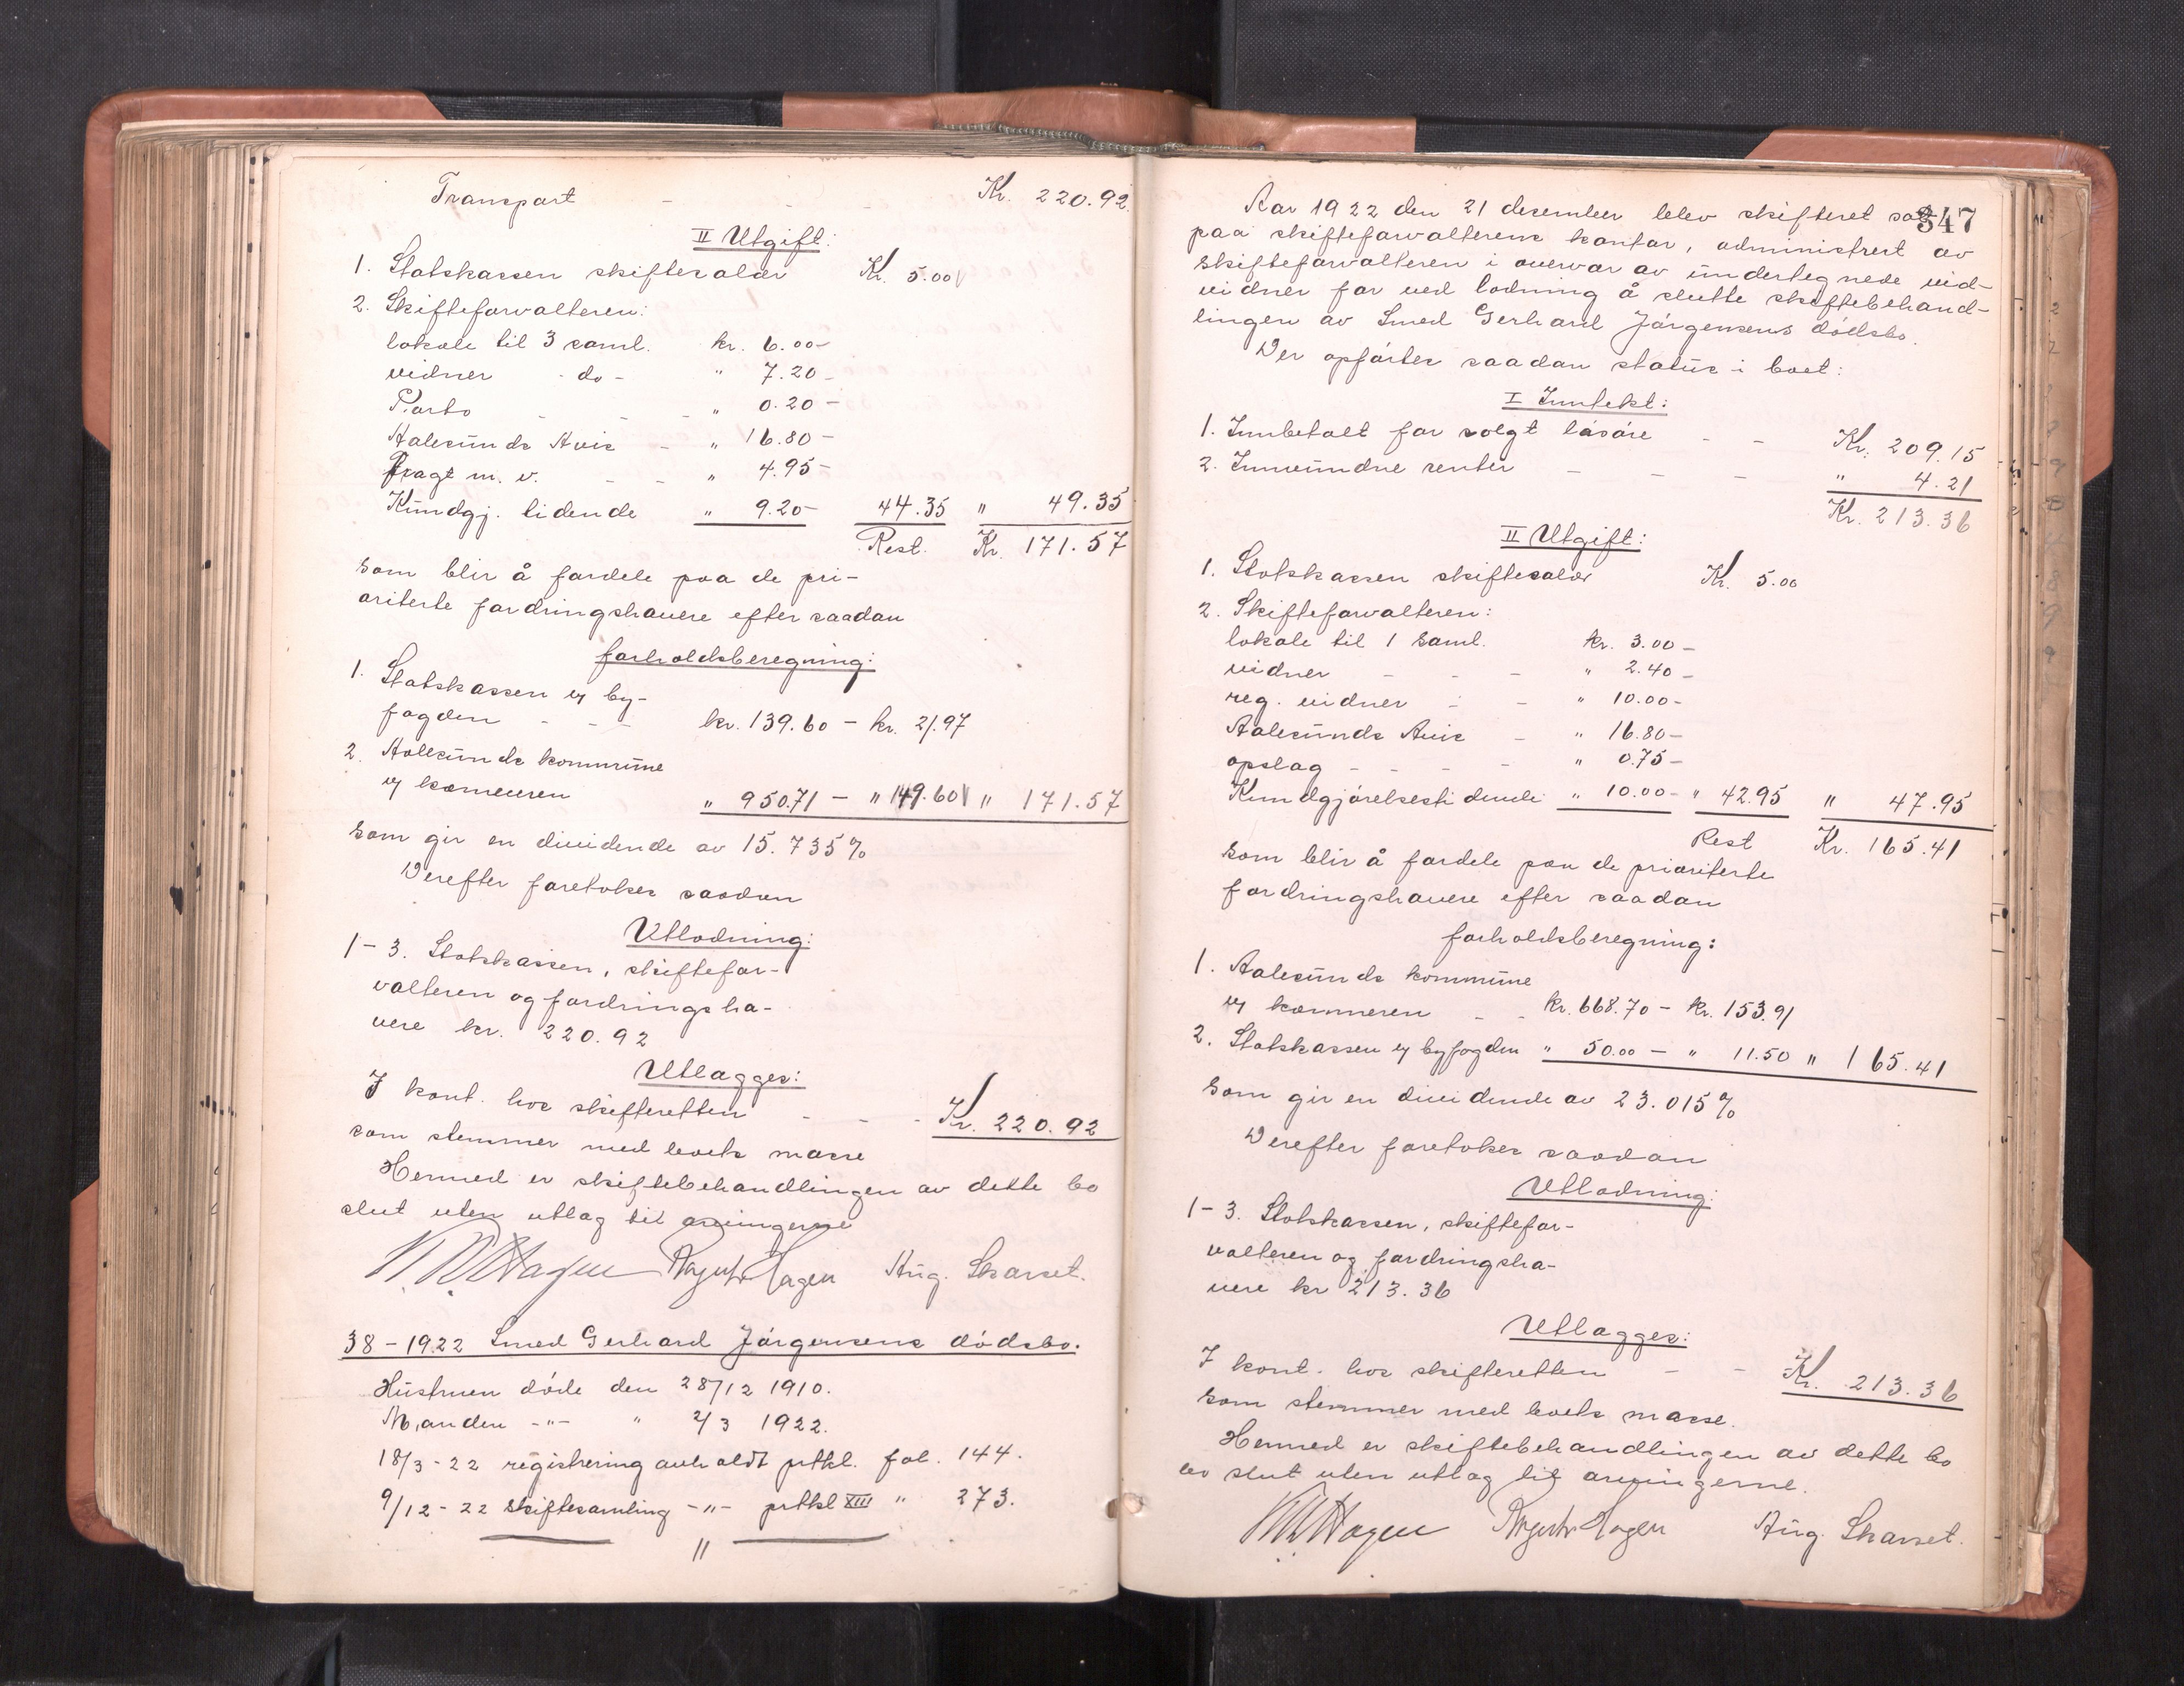 Transport - - - Kr. 220.92.
II Utgift:
1. Statskassen skiftesalær Kr. 5.00
2. Skifteforvalteren:
lokale til 3 saml. kr. 6.00-
vidner - do - " 7.20-
Porto - - - " 0.20-
Aalesunds Avis - " 16.80-
fragt m. v. - - " 4.95-
Kundgj. tidende " 9.20- 44.35 " 49.35
Rest. Kr. 171.57
som blir å fordele paa de pri-
oriterte fordringshavere efter saadan
forholdsberegning:
1. Statskassen v/ by-
fogden - - - kr. 139.60 - kr. 21.97
2. Aalesunds kommune
v/ kæmneren " 950.71 - " 149.60 " 171.57
som gir en dividende av 15.735%
Derefter foretokes saadan
Utlodning:
1-3. Statskassen, skiftefor-
valteren og fordringsha-
vere kr. 220.92
Utlægges:
I kont. hos skifteretten - - - Kr. 220.92
som stemmer med boets masse
Hermed er skiftebehandlingen av dette bo
slut uten utlag til arvingerne
Hagen Hagen Aug. Skarset.
38-1922 Smed Gerhard Jørgensens dødsbo.
Hustruen døde den 28/12 1910.
Manden -"- " 2/3 1922.
18/3-22 registrering avholdt prtkl. fol. 144.
9/12-22 skiftesamling -"- prtkl XIII " 273.
"
347
Aar 1922 den 21 desember blev skifteret sat
paa skifteforvalterens kontor, administrert av
skifteforvalteren i overvær av undertegnede vid-
vidner for ved lodning å slutte skiftebehand-
lingen av Smed Gerhard Jørgensens dødsbo.
Der opførtes saadan status i boet:
I Inntekt:
1. Innbetalt for solgt løsøre - - Kr. 209.15
2. Innvundne renter - - - " 4.21
Kr. 213.36
II Utgift:
1. Statskassen skiftesalær Kr. 5.00
2. Skifteforvalteren:
lokale til 1 saml. kr. 3.00-
vidner - - - " 2.40-
reg. vidner - - " 10.00-
Aalesunds Avis - " 16.80-
opslag - - - - " 0.75-
Kundgjørelsestidende " 10.00- " 42.95 " 47.95
Rest Kr. 165.41
som blir å fordele paa de prioriterte
fordringshavere efter saadan
forholdsberegning:
1. Aalesunds kommune
v/ kæmneren - - kr. 668.70 - kr. 153.91
2. Statskassen v/ byfogden " 50.00 - " 11.50 " 165.41
som gir en dividende av 23.015%
Derefter foretokes saadan
Utlodning:
1-3. Statskassen, skiftefor-
valteren og fordringsha-
vere kr 213.36
Utlægges:
I kont. hos skifteretten - - Kr. 213.36
som stemmer med boets masse.
Hermed er skiftebehandlingen av dette bo
slut uten utlag til arvingerne.
Hagen Hagen Aug. Skarset.